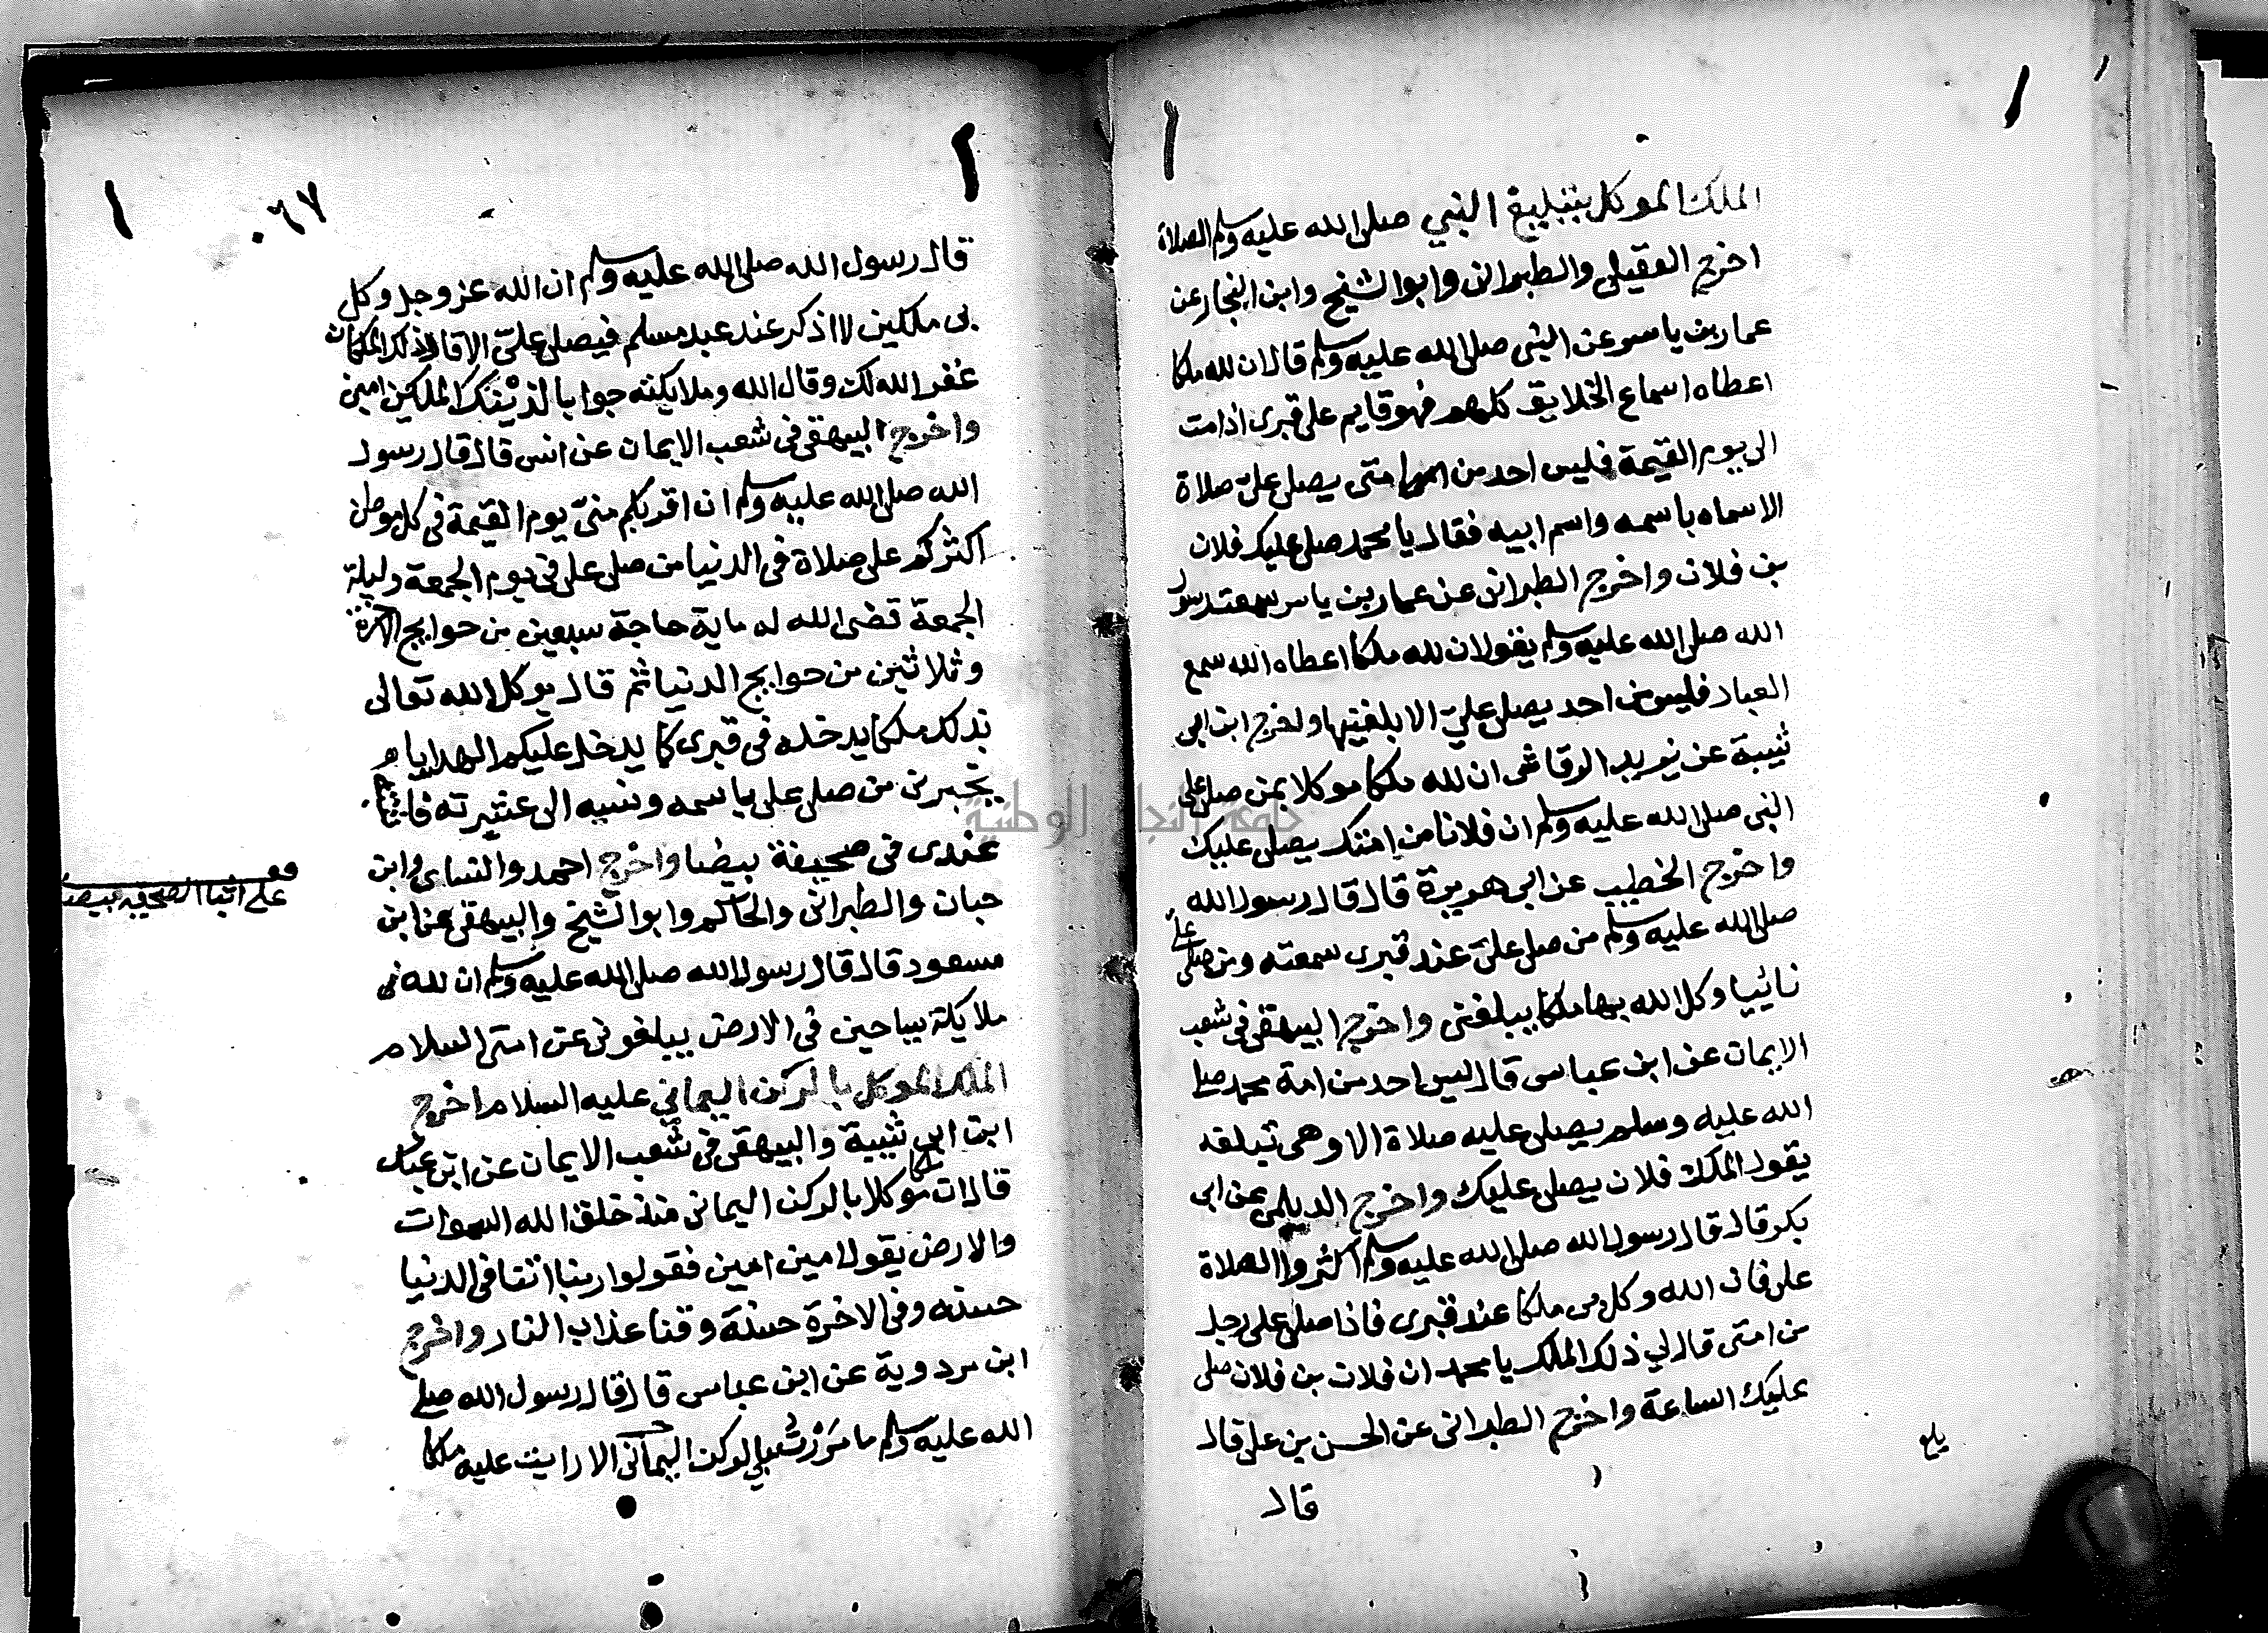 الملك الموكل بتبليغ النبي صلى الله عليه وسلم الصلاة
اخرج العقيلي والطبراني وابوالشيخ وابن النجار عن
عمار بن ياسر عن النبي صلى الله عليه وسلم قال ان لله ملكا
اعطاه اسماع الخلايق كلهم فهو قايم على قبرى اذا مت
الى يوم القيمة فليس احد من امتى يصلى علىّ صلاة
الا سماه باسمه واسم ابيه فقال يا محمد صلى عليك فلان
بن فلان واخرج الطبرانى عن عمار بن ياسر سمعت رسول
الله صلى الله عليه وسلم يقول ان لله ملكا اعطاه الله سمع
العباد فليس من احد يصلى عليّ الا بلغنيها واخرج ابن ابى
شيبة عن يزيد الرقاشى ان لله ملكا موكلا بمن صلى على
النبى صلى الله عليه وسلم ان فلانا من امتك يصلى عليك
واخرج الخطيب عن ابى هريرة قال قال رسول الله
صلى الله عليه وسلم من صلى علىّ عند قبرى سمعته ومن صلى علىّ
نائيا وكل الله بها ملكا يبلغنى واخرج البيهقى فى شعب
الايمان عن ابن عباس قال ليس احد من امة محمد صلى
الله عليه وسلم يصلى عليه صلاة الا وهى تبلغه
يقول الملك فلان يصلى عليك واخرج الديلمى عن ابى
بكر قال قال رسول الله صلى الله عليه وسلم اكثروا الصلاة
على فان الله وكل بى ملكا عند قبرى فاذا صلى على رجل
من امتى قال لي ذلك الملك يا محمد ان فلان بن فلان صلى
عليك الساعة واخرج الطبرانى عن الحسن بن على قال
قال
بلغ
٠٦٧
قال رسول الله صلى الله عليه وسلم ان الله عز وجل وكل
بى ملكين لا اذكر عند عبد مسلم فيصلى علىّ الا قال ذلك الملكان
غفر الله لك وقال الله وملايكته جوابا لذينك الملكين امين
واخرج البيهقى فى شعب الايمان عن انس قال قال رسول
الله صلى الله عليه وسلم ان اقربكم منىّ يوم القيمة فى كل موطن
اكثركم على صلاة فى الدنيا من صلى على فى يوم الجمعة وليلة
الجمعة قضى الله له ماية حاجة سبعين من حوايج الاخرة
وثلاثين من حوايج الدنيا ثم قال يوكل الله تعالى
بذلك ملكا يدخله فى قبرى كما يدخل عليكم الهدايا
يخبرنى من صلى على باسمه ونسبه الى عشيرته فاثبته
عندى فى صحيفة بيضا واخرج احمد والنساى وابن
حبان والطبرانى والحاكم وابوالشيخ والبيهقى عن ابن
مسعود قال قال رسول الله صلى الله عليه وسلم ان لله فى
ملايكة سياحين فى الارض يبلغونى عن امتى السلام
الملك الموكل بالركن اليماني عليه السلام اخرج
ابن ابى شيبة والبيهقى فى شعب الايمان عن ابن عباس
قال ان ملكا موكلا بالركن اليمانى منذ خلق الله السموات
والارض يقول امين امين فقولوا ربنا اتنا فى الدنيا
حسنه وفى الاخرة حسنة وقنا عذاب النار واخرج
ابن مردوية عن ابن عباس قال قال رسول الله صلى
الله عليه وسلم ما مررت على الركن اليمانى الا رايت عليه ملكا
قف
على اثبات الصحيفه بيضا
جامعة النجاح الوطنية